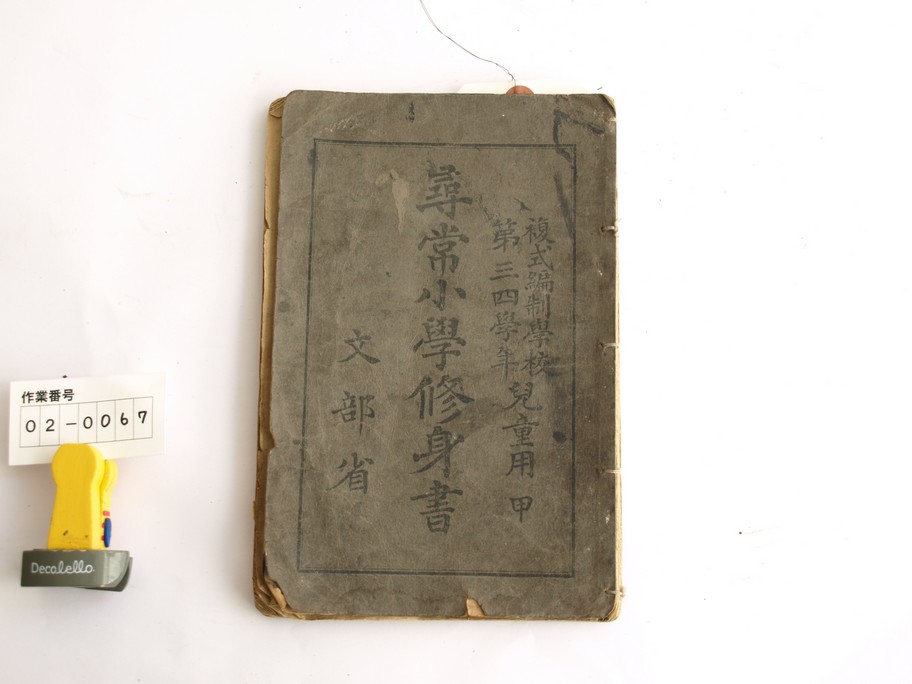 複式編制學校
第三四學年
兒童用 甲
尋常小學修身書
文部省
作業番号
02-0067
Decolello